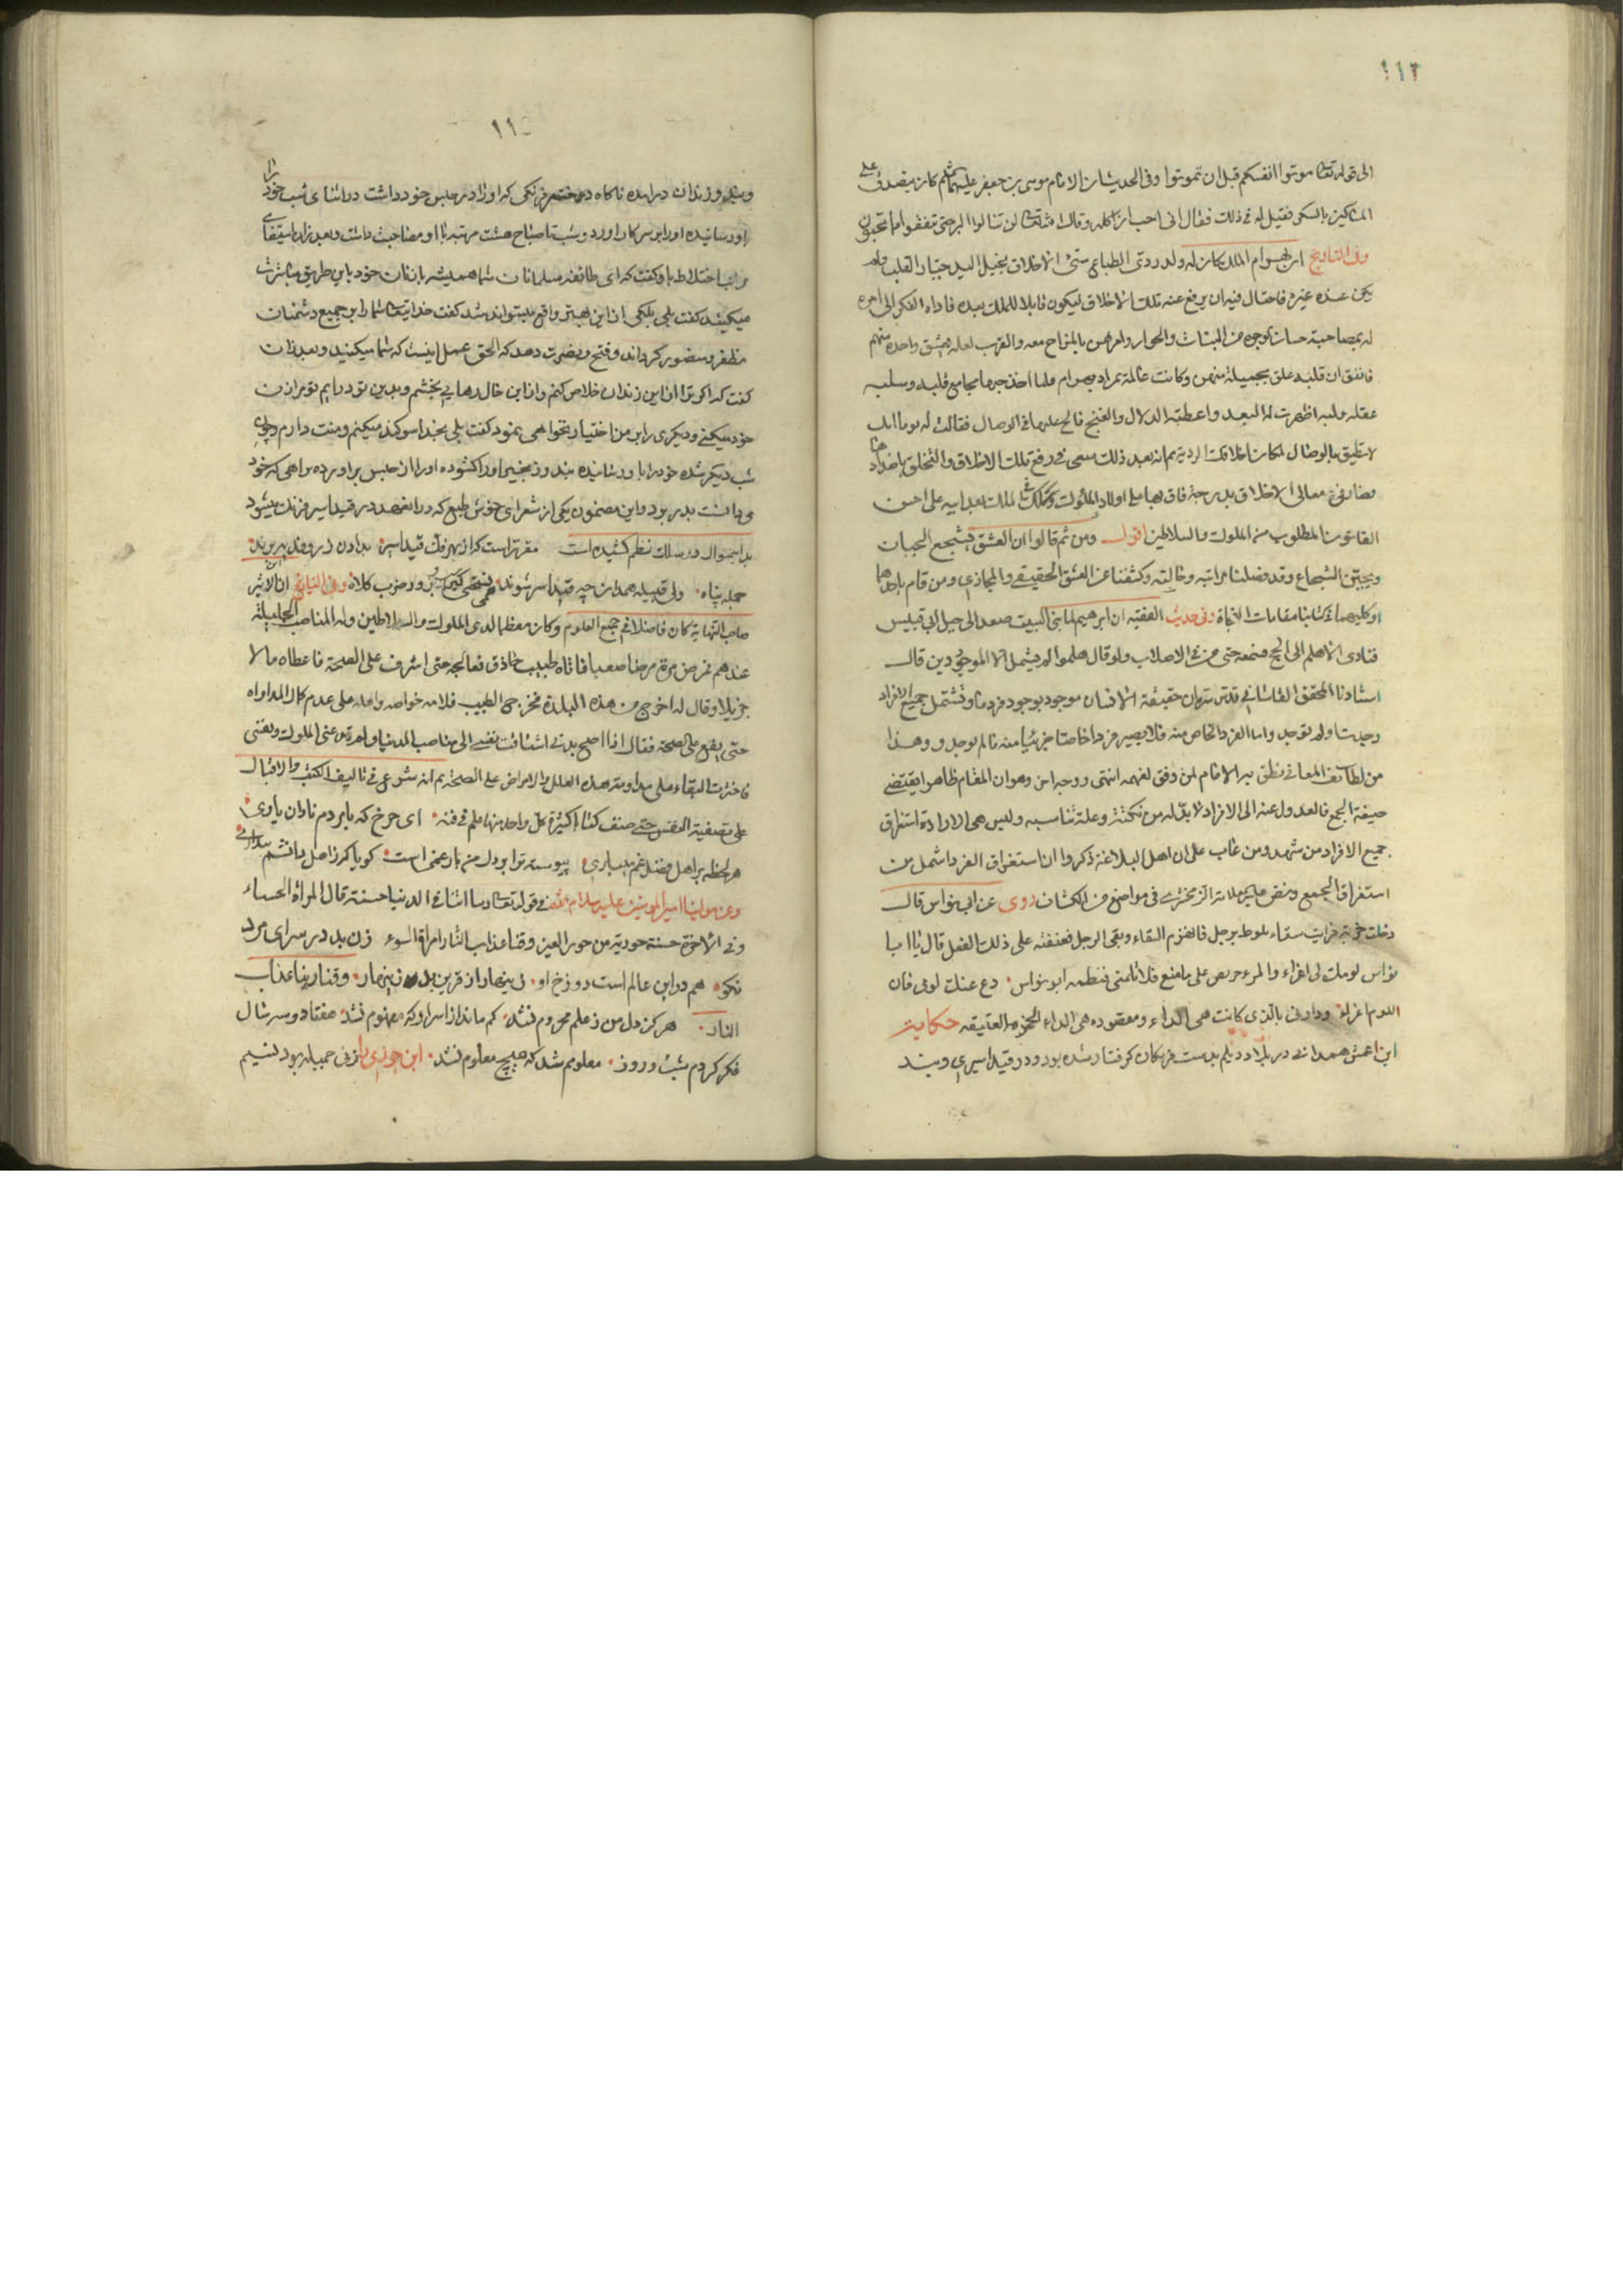 ١١٤
الی قوله تعا موتوا انفسکم قبل ان تموتوا وفی الحدیث ان الامام موسی بن جعفر علیهما کان یتصدق علی
المساکین بالسکر فقیل له فی ذلک فقال انی احب ان آکله وقال الله تعالی لن تنالوا البر حتی تنفقوا مما تحبون
وفی التاریخ ان بهرام الملک کان له ولد ردی الطباع سیئ الاخلاق بخیل الید جبان القلب ولم
یکن عنده غیره فاحتال فیه ان یرفع عنه تلک الاخلاق لیکون قابلا للملک بعده فاداه الفکر الی امره
له بمصاحبة حسان الوجوه من البنات والجوار وامرهن بالمزاح معه والقرب لعله یعشق واحدة منهم
فاتفق ان قلبه علق بجمیلة منهن وکانت عالمة بمراد بهرام فلما اخذ حبها بمجامع قلبه وسلب
عقله ولبه اظهرت له البعد واعطته الدلال والغنج فالح علیها فی الوصال فقالت له یوما انک
لا تلیق بالوصال لمکان اخلاقک الردیة ثم انه بعد ذلک سعی فی رفع تلک الاخلاق والتخلق باضدادها
فصار فی معالی الاخلاق بدرجة فاق بها علی اولاد الملوک وملک الملک بعد ابیه علی احسن
القانون المطلوب من الملوک والسلاطین اقول ومن ثم قالوا ان العشق یشجع الجبان
ویجبن الشجاع وقد فصلنا مراتبه وحالته وکشفنا عن العشق الحقیقی والمجازی ومن قام باحدهما
او کلیهما فی کتابنا مقامات النجاة وفی حدیث الفقیه ان ابرهیم لما بنی البیت صعد الی جبل ابی قبیس
فنادی الا هلم الی الحج فسمعه حتی من فی الاصلاب ولو قال هلموا لم یشمل الا الموجودین قال
استادنا المحقق القاسانی قدس سره ان حقیقة الانسان موجود بوجود فرد ما وتشتمل جمیع الافراد
وجدت او لم توجد واما الفرد الخاص منه فلا یصیر فردا خاصا جزئیا منه ما لم یوجد وهذا
من لطائف المعانی نطق به الامام لمن وفق لفهمه انتهی ووجه اخر وهو ان المقام ظاهرا یقتضی
صیغة الجمع فالعدول عنه الی الافراد لا بد له من نکتة وعلة تناسبه ولیس هی الا ارادة استغراق
جمیع الافراد من شهد ومن غاب علی ان اهل البلاغة ذکروا ان استغراق الفرد اشمل من
استغراق الجمع ونص علیه العلامة الزمخشری فی مواضع من الکشاف روی عن ابی نواس قال
دخلت خربة فرایت سقاء یلوط برجل فانهزم السقاء وبقی الرجل فعنفته علی ذلک الفعل قال یا ابا
نواس لومک لی اغراء والمرء حریص علی ما منع فلا تلمنی فنظمه ابو نواس دع عنک لومی فان
اللوم اغراء وداونی بالتی کانت هی الداء ومقصوده هی الداء الخمرة العتیقه حکایت
ابن اعمش همدانی در بلاد دیلم بدست فرنکان کرفتار شده بود و در قید اسیری وبند
١١٥
و زندان درامده ناکاه دختر فرنکی که او را در حبس خود داشت در اثنای شب خود را
باو رسانیده او را بر سر کار اورد و شب تا صباح هشت مرتبه با او مصاحبت داشت وبعد از استیفای
مراتب اختلاط باو کفت که ای طائفه مسلمانان شما همیشه با زنان خود باین طریق مباشرت
میکنید کفت بلی بلکه از این بهتر واقع میتواند شد کفت خدایتعا شما را بر جمیع دشمنان
مظفر و منصور کرداند و فتح و نصرت دهد که الحق عمل اینست که شما میکنید و بعد از آن
کفت که اکر ترا از این زندان خلاص کنم و از این حال رهایی بخشم و بدین تو درایم تو مرا زن
خود میکنی و دیکری را بر من اختیار نخواهی نمود کفت بلی بخدا سوکند میکنم و منت دارم و چون
شب دیکر شده خود را باو رسانیده بند و زنجیر او را کشوده او را از حبس براورده براهی که خود
میدانست بدر برد و این مضمون یکی از شعرای خوش طبع که در انعهد در قید اسیر فرنک میشود
بدینمنوال در سلک نظم کشیده است مقرر است که از بهر فک قید اسیر بدادن زر و فدیه برند
جمله پناه ولی قبیله همدان چه قید اسر شوند وفی التاریخ ان ابن الاثیر
صاحب النهایة کان فاضلا فی جمیع العلوم وکان معظما لدی الملوک والسلاطین وله المناصب الجلیلة
عندهم فمرض مرة مرضا صعبا فاتاه طبیب حاذق فعالجه حتی اشرف علی الصحة فاعطاه مالا
جزیلا وقال له اخرج من هذه البلدة فخرج الطبیب فلامه خواصه واهله علی عدم کمال المداواه
حتی یقع علی الصحة فقال اذا صح بدنی اشتاقت نفسی الی مناصب الدنیا
فاخترت البقاء علی مداومة هذه العلل والامراض علی الصحة ثم انه شرع فی تالیف الکتب والاقبال
علی تصفیة النفس حتی صنف کتبا کثیرة کل واحد منها علم فی فنه ای چرخ که با مردم نادان یاری
هر لحظه بر اهل فضل غم میباری پیوسته ترا بر دل من بار غمی است کویا که ز اهل دانشم پنداری
وعن مولینا امیرالمومنین علیه سلام الله فی قوله تعا ربنا اتنا فی الدنیا حسنة قال المراة الحسناء
وفی الاخرة حسنة حوریة من حور العین وقنا عذاب النار امراة السوء زن بد در سرای مرد
نکو هم در این عالم است دوزخ او زینهار از قرین بد زینهار وقنا ربنا عذاب
النار هرکز دل من ز علم محروم نشد کم ماند از اسرار که مفهوم نشد هفتاد و سه سال
فکر کردم شب و روز معلوم شد که هیچ معلوم نشد ابن جوزی را زنی جمیله بود نسیم